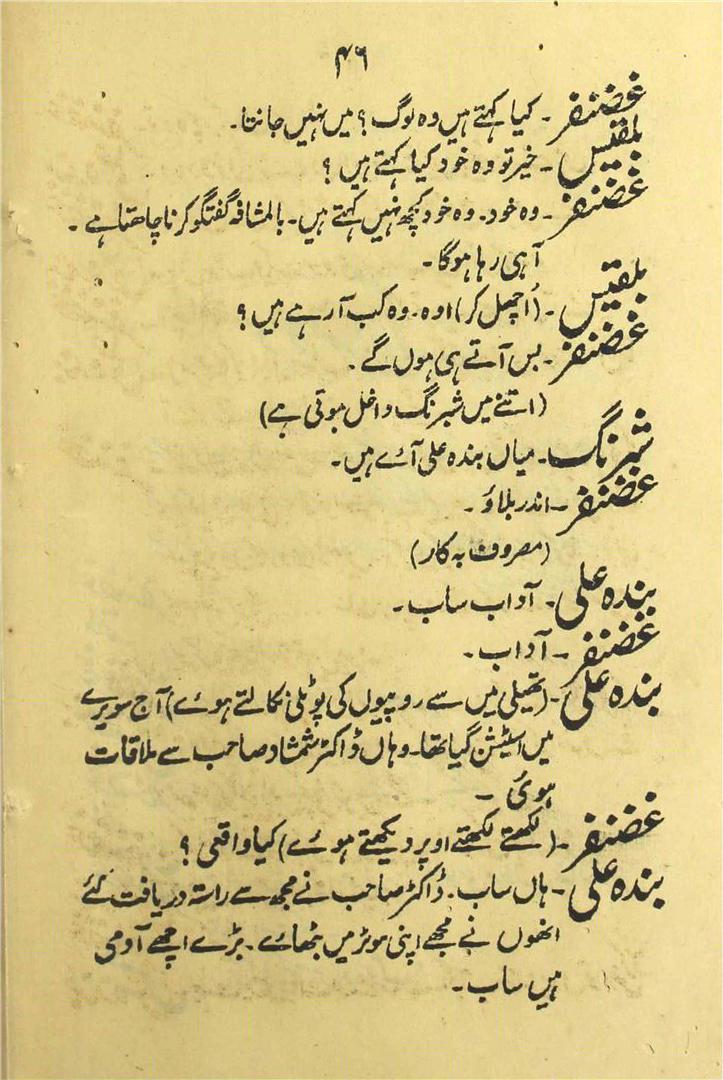 ۴۶
غضنفر ۔ کیا کہتے ہیں وہ لوگ ؟ میں نہیں جانتا۔
بلقیس ۔ خیر تو وہ خود کیا کہتے ہیں ؟
غضنفر ۔ وہ خود۔ وہ خود کچھ نہیں کہتے ہیں۔ بالمشافہ گفتگو کرنا چاھتا ہے ۔
آ ہی رہا ہوگا ۔
بلقیس ۔ (اُچھل کر) اوہ۔ وہ کب آرہے ہیں ؟
غضنفر ۔ بس آتے ہی ہوں گے ۔
(اتنے میں شبرنگ داخل ہوتی ہے)
شبرنگ ۔ میاں بندہ علی آئے ہیں۔
غضنفر ۔ اندر بلاؤ ۔
(مصروف بہ کار)
بندہ علی ۔ آداب ساب ۔
غضنفر ۔ آداب ۔
بندہ علی ۔ (تھیلی میں سے روپیوں کی پوٹلی نکالتے ہوئے) آج سویرے
میں اسٹیشن گیا تھا۔ وہاں ڈاکٹر شمشاد صاحب سے ملاقات
ہوئی ۔
غضنفر ۔ (لکھتے لکھتے اوپر دیکھتے ہوئے) کیا واقعی ؟
بندہ علی ۔ ہاں ساب ۔ ڈاکٹر صاحب نے مجھ سے راستہ دریافت کئے
انھوں نے مجھے اپنی موٹر میں بٹھائے ۔ بڑے اچھے آدمی
ہیں ساب ۔